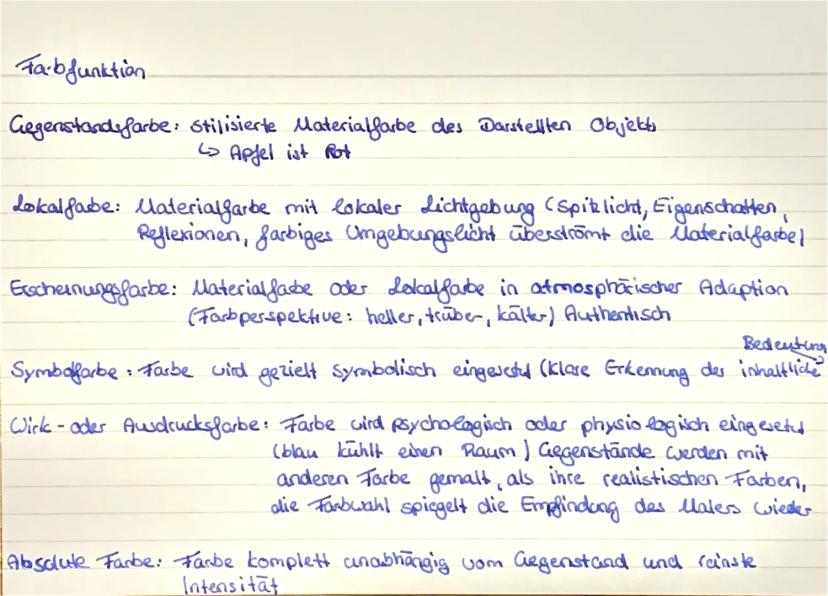 Farbfunktion
Gegenstandsfarbe: stilisierte Materialfarbe des Darstellten Objekts
↳ Apfel ist Rot
Lokalfarbe: Materialfarbe mit lokaler Lichtgebung (Spitzlicht, Eigenschatten,
Reflexionen, farbiges Umgebungslicht überströmt die Materialfarbe)
Erscheinungsfarbe: Materialfarbe oder Lokalfarbe in atmosphärischer Adaption
(Farbperspektive: heller, trüber, kälter) Authentisch
Bedeutung
Symbolfarbe: Farbe wird gezielt symbolisch eingesetzt (klare Erkennung der inhaltliche
Wirk- oder Ausdrucksfarbe: Farbe wird psychologisch oder physiologisch eingesetzt
(blau kühlt einen Raum) Gegenstände werden mit
anderen Farbe gemalt, als ihre realistischen Farben,
die Farbwahl spiegelt die Empfindung des Malers wieder
Absolute Farbe: Farbe komplett unabhängig vom Gegenstand und reinste
Intensität